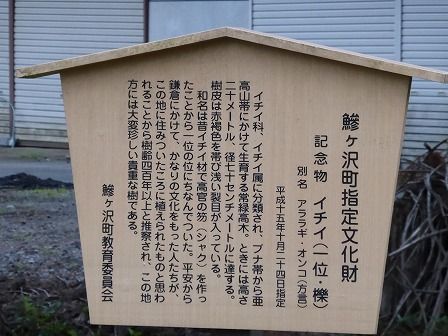 鰺ヶ沢町指定文化財
記念物 イチイ(一位・櫟)
別名 アララギ・オンコ(方言)
平成十五年十月二十四日指定
イチイ科、イチイ属に分類され、ブナ帯から亜
高山帯にかけて生育する常緑高木。ときには高さ
二十メートル、径七十センチメートルに達する。
樹皮は赤褐色を帯び浅い裂目が入っている。
和名は昔イチイ材で高官の笏(シャク)を作っ
たことから一位の位にちなんでついた。平安から
鎌倉にかけて、かなりの文化をもった人たちが、
この地に住みついたころに植えられたものと思わ
れることから樹齢四百年以上と推察され、この地
方には大変珍しい貴重な樹である。
鰺ヶ沢町教育委員会